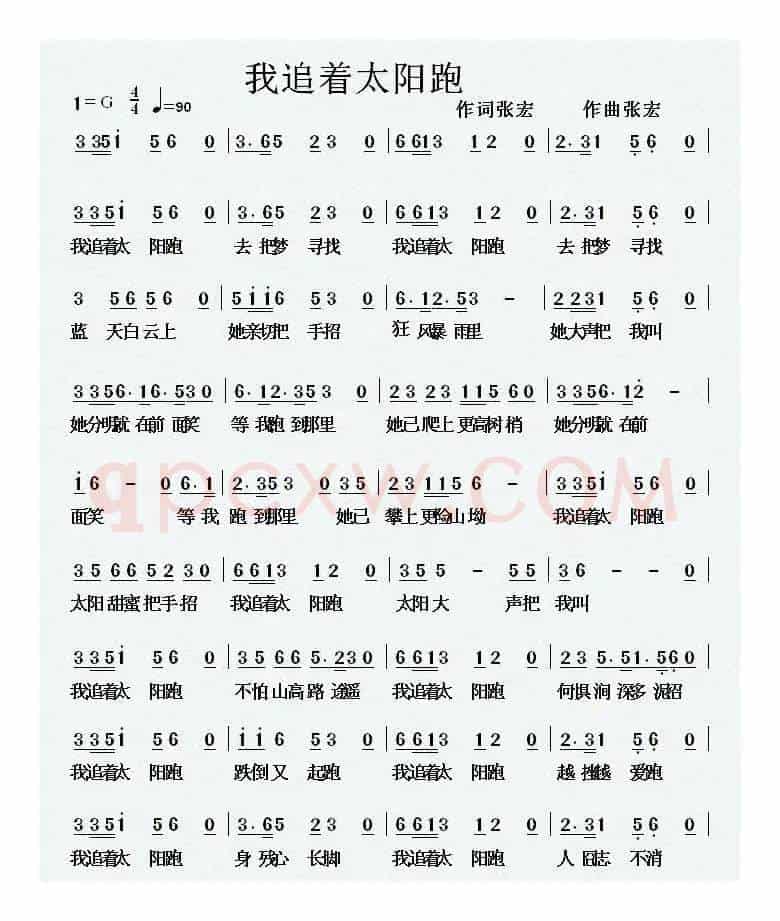 我追着太阳跑
1=G 4/4 ♩=90
作词张宏 作曲张宏
3 3 5 i 5 6 0 | 3. 6 5 2 3 0 | 6 6 1 3 1 2 0 | 2. 3 1 5 6 0 |
3 3 5 i 5 6 0 | 3. 6 5 2 3 0 | 6 6 1 3 1 2 0 | 2. 3 1 5 6 0 |
我追着太 阳跑 去 把梦 寻找 我追着太 阳跑 去 把梦 寻找
3 5 6 5 6 0 | 5 i i 6 5 3 0 | 6. 1 2. 5 3 - | 2 2 3 1 5 6 0 |
蓝 天白云上 她亲切把 手招 狂 风暴 雨里 她大声把 我叫
3 3 5 6. 1 6. 5 3 0 | 6. 1 2. 3 5 3 0 | 2 3 2 3 1 1 5 6 0 | 3 3 5 6. 1 2 - |
她分明就 在前 面笑 等 我跑 到那里 她已爬上更高树梢 她分明就 在前
i 6 - 0 6. 1 | 2. 3 5 3 0 3 5 | 2 3 1 1 5 6 | 3 3 5 i 5 6 0 |
面笑 等 我 跑 到那里 她已 攀上更险山坳 我追着太 阳跑
3 5 6 6 5 2 3 0 | 6 6 1 3 1 2 0 | 3 5 5 - 5 5 | 3 6 - - 0 |
太阳甜蜜把手招 我追着太 阳跑 太阳大 声把 我叫
3 3 5 i 5 6 0 | 3 5 6 6 5. 2 3 0 | 6 6 1 3 1 2 0 | 2 3 5. 5 1. 5 6 0 |
我追着太 阳跑 不怕山高路 途遥 我追着太 阳跑 何惧涧 深多 泥沼
3 3 5 i 5 6 0 | i i 6 5 3 0 | 6 6 1 3 1 2 0 | 2. 3 1 5 6 0 |
我追着太 阳跑 跌倒又 起跑 我追着太 阳跑 越 挫越 爱跑
3 3 5 i 5 6 0 | 3. 6 5 2 3 0 | 6 6 1 3 1 2 0 | 2. 3 1 5 6 0 |
我追着太 阳跑 身 残心 长脚 我追着太 阳跑 人 囧志 不消
qpcxw.COM